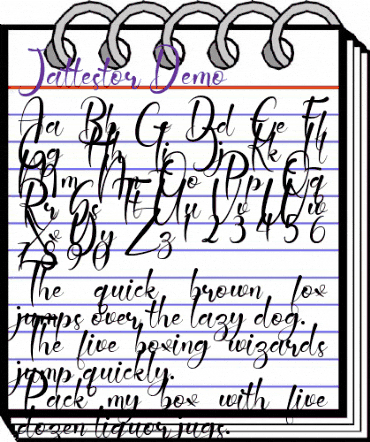 Jattestor Demo
Aa Bb Cc Dd Ee Ff
Gg Hh Ii Jj Kk Ll
Mm Nn Oo Pp Qq
Rr Ss Tt Uu Vv Ww
Xx Yy Zz 1 2 3 4 5 6
7 8 9 0
The quick brown fox
jumps over the lazy dog.
The five boxing wizards
jump quickly.
Pack my box with five
dozen liquor jugs.